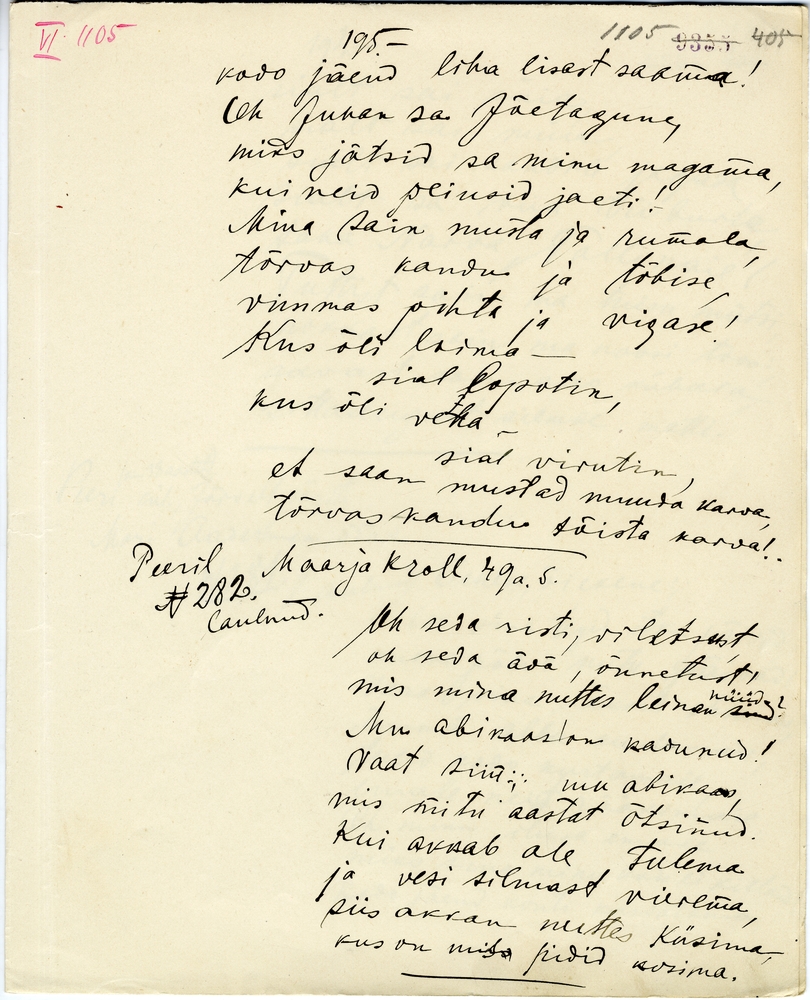 VI 1105
1105 9355 405
195.—
kodo jäend liha lisast saama!
Oh Juhan sa Jõetagune,
miks jätsid sa minu magama,
kui neid peiusid jaeti!
Mina sain musta ja rumala,
tõrvas kandu ja tõbise,
vimmas pihta ja vigase!
Kus õli loima —
sial lopotin,
kus õli vetha —
sial virutin,
et saan mustad muuda karva,
tõrvas kandu tõista karva!.
Peeril Maarja Kroll, 49 a. s.
# 282.
laulnud.
Oh seda risti, viletsust,
oh seda ädä, õnnetust!
mis mina nuttes leinan nüüd?
Mu abikaas on kadunud!
Vaat siin mu abikaas,
mis mitu aastat õtsinud.
Kui akkab ale tulema
ja vesi silmast vierema,
siis akkan nuttes küsima,
kus on pidid kosima.